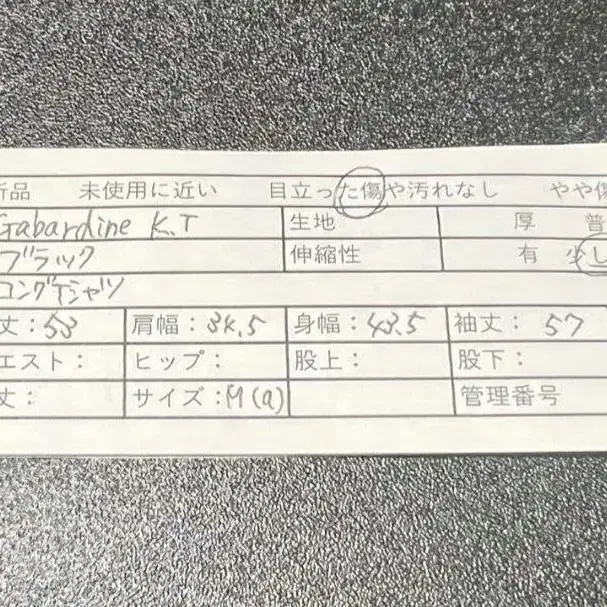 新品 未使用に近い 目立った傷や汚れなし やや傷
Gabardine K.T 生地 厚 普
ブラック 伸縮性 有 少し
ロングTシャツ
丈:53 肩幅:34.5 身幅:43.5 袖丈:57
エスト: ヒップ: 股上: 股下:
丈: サイズ:M(a) 管理番号